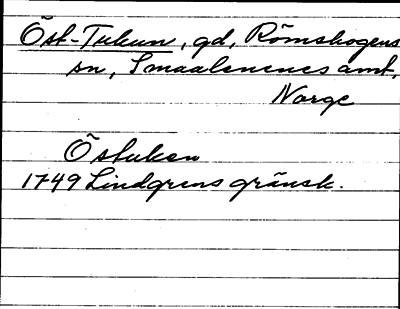 Öst-Tukun, gd, Römskogens
sn, Smaalenenes amt,
Norge
Östuken
1749 Lindgrens gränsk.